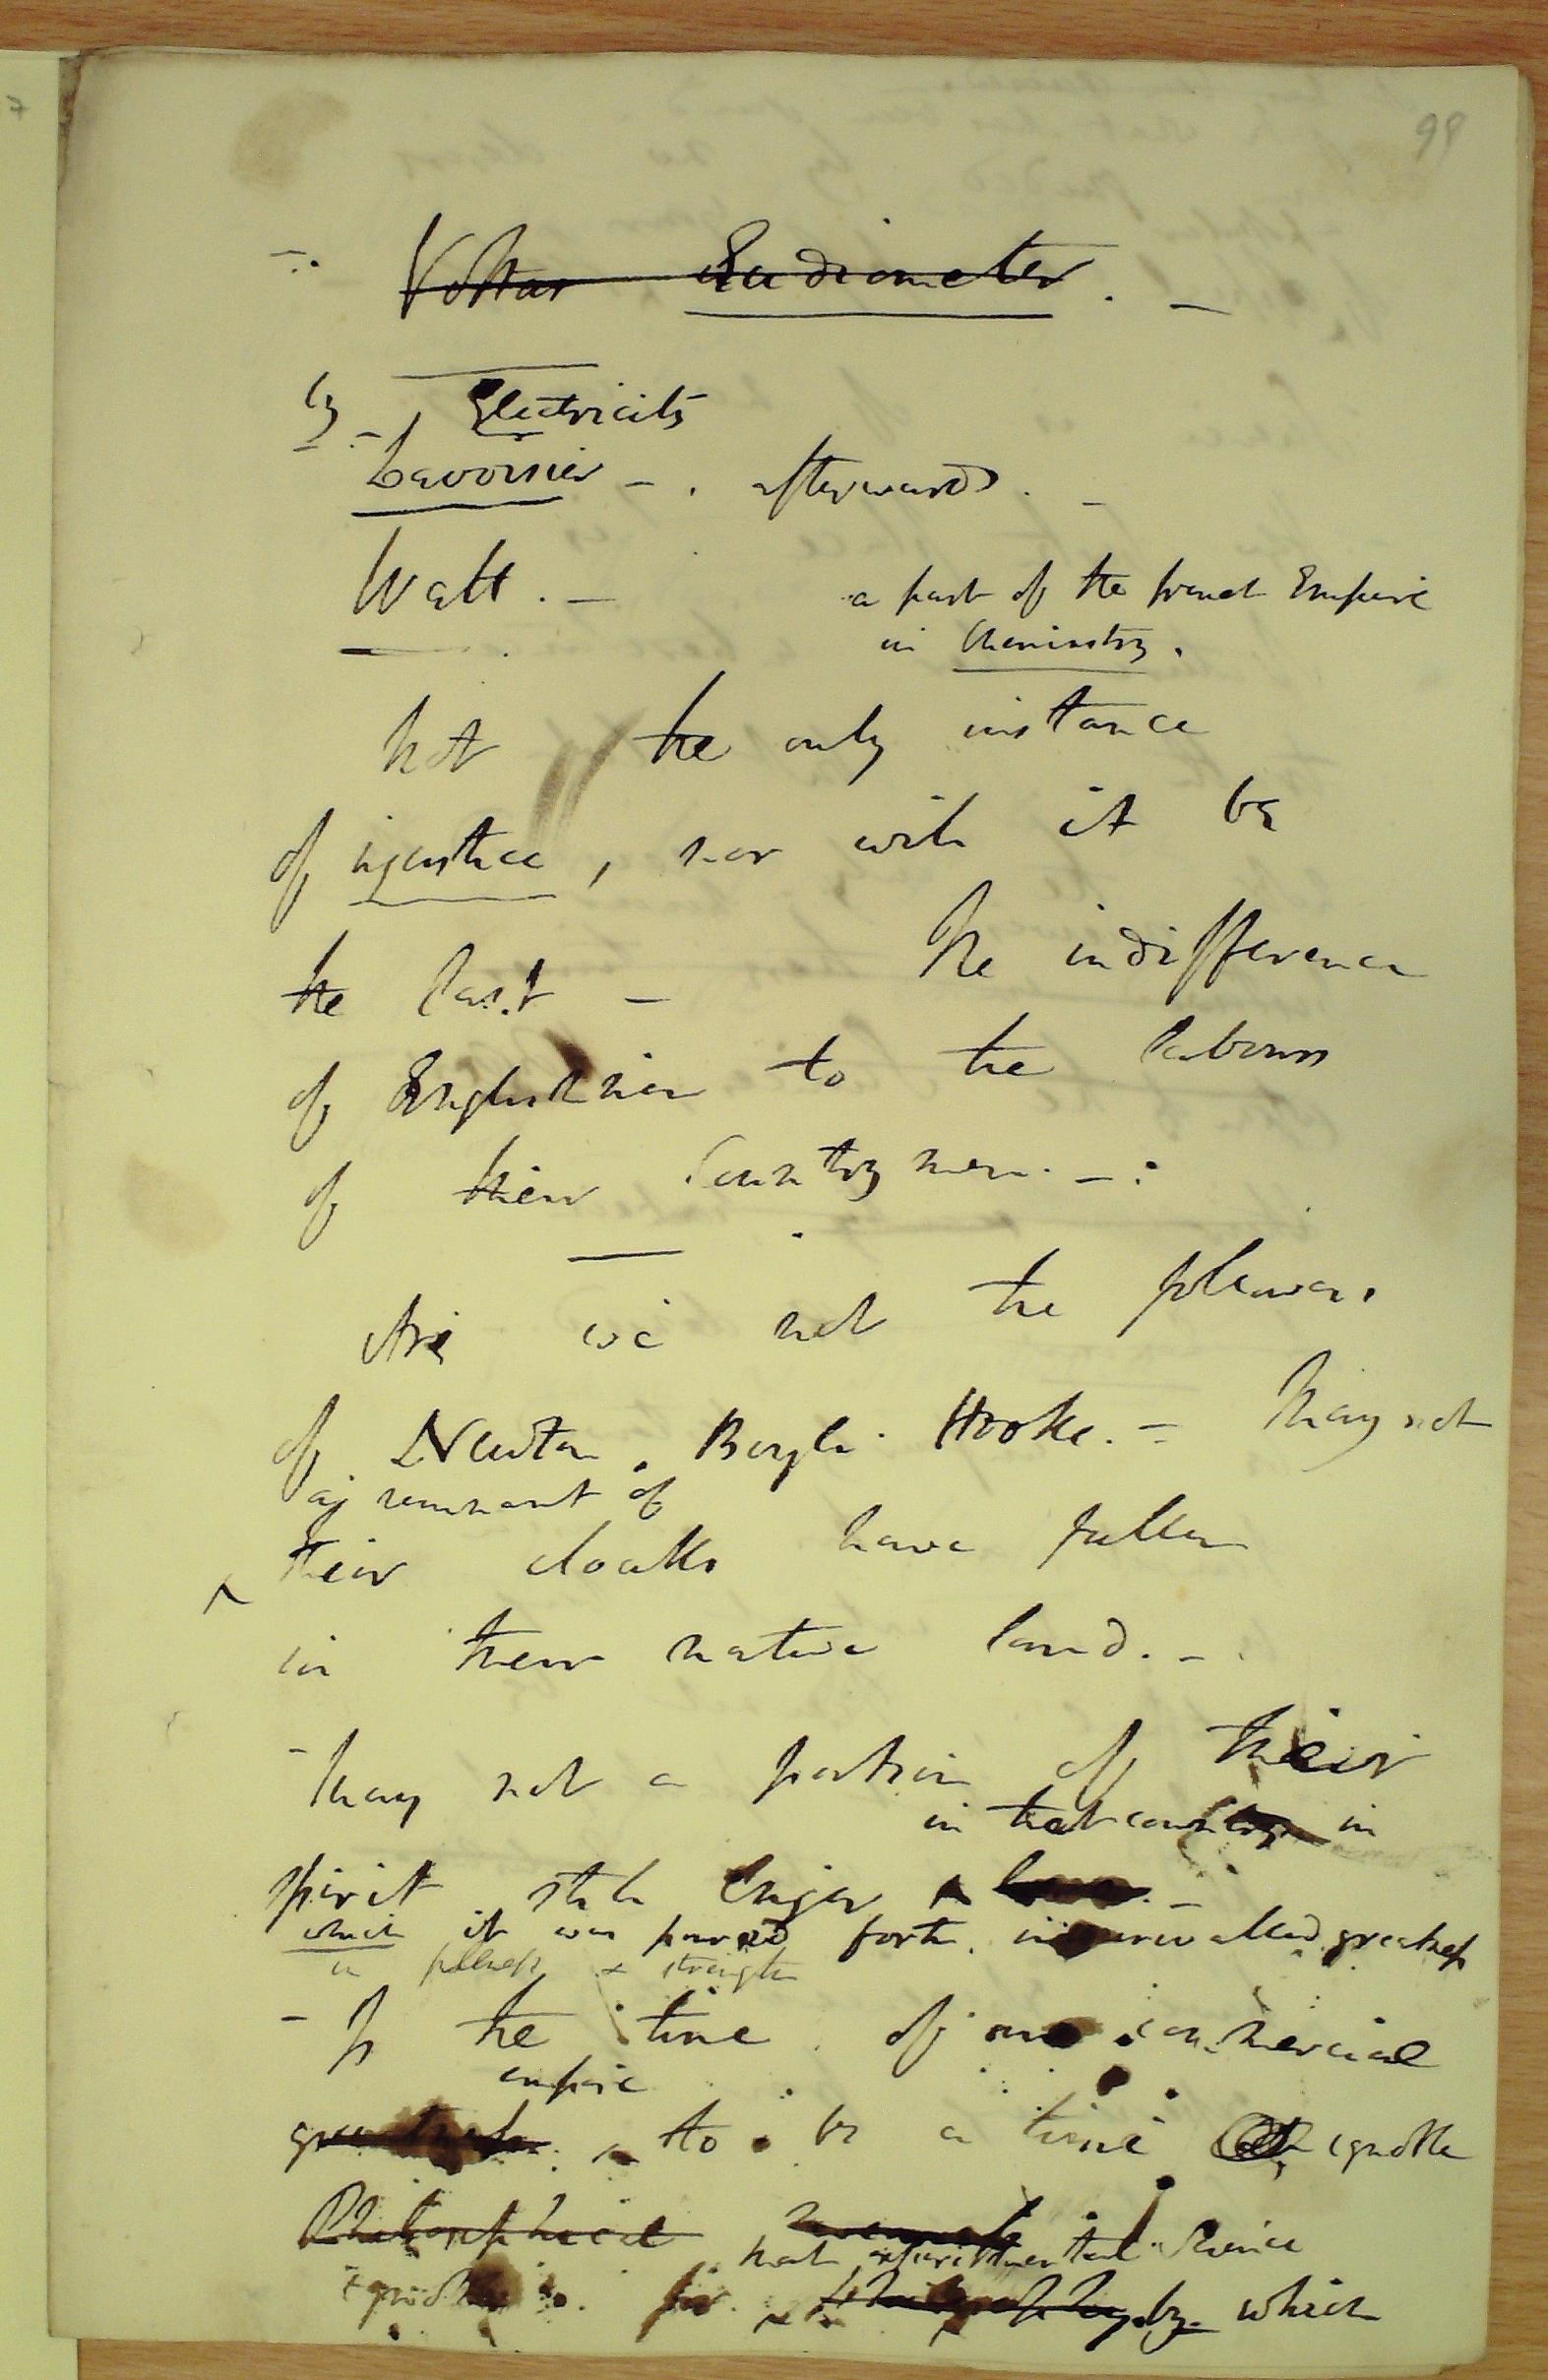 99
Voltas Eudiometer. –
by – Electricity
Lavoisier – . afterwards. –
Watt. –
a part of the french Empire
in Chemistry.
Not the only instance
of injustice, nor will it be
the last – The indifference
of Englishmen to the labours
of their Countrymen. – :
Are we not the followers
of Newton, Boyle. Hooke. – May not
a remnant of
their cloaks have fallen
in their native land. –
– May not a portion of their
in that country in
spirit still linger
which it was poured forth. in unrivalled greatness
in fullness & strength
– Is the time of our commercial
empire
greatness to be a time of ignoble
Philosophical
that experimental Science
ignoble for Philosophy by which